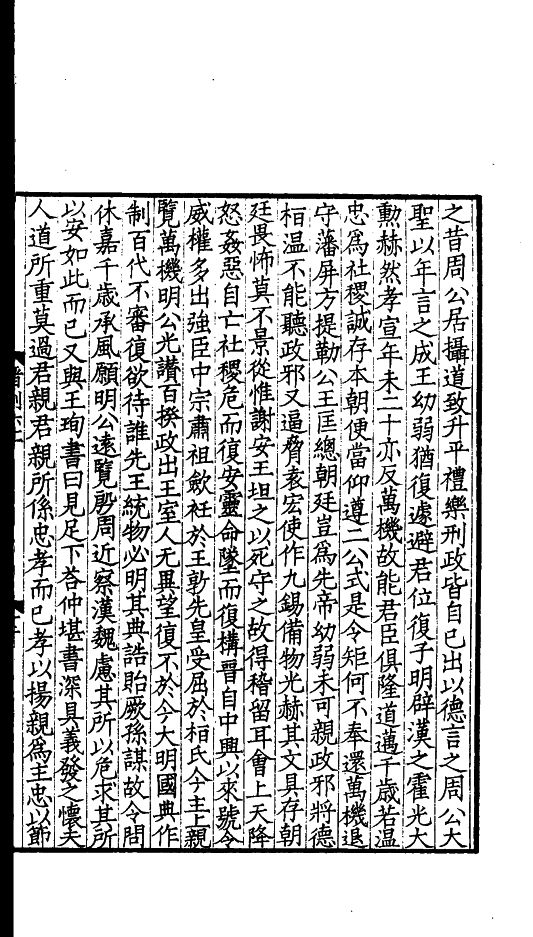 之昔周公居攝道致升平禮樂刑政皆自已出以德言之周公大
聖以年言之成王幼弱猶復遽避君位復子明辟漢之霍光大
勲赫然孝宣年未二十亦反萬機故能君臣俱隆道邁千歲若温
忠爲社稷誠存本朝便當仰遵二公式是令矩何不奉還萬機退
守藩屏方提勒公王匡總朝廷豈爲先帝幼弱未可親政邪將德
桓温不能聽政邪又逼脅袁宏使作九錫備物光赫其文具存朝
廷畏怖莫不景從惟謝安王坦之以死守之故得稽留耳會上天降
怒姦惡自亡社稷危而復安靈命墜而復構晉自中興以來號令
威權多出強臣中宗肅祖歛衽於王敦先皇受屈於桓氏今主上親
覽萬機明公光讚百揆政出王室人无異望復不於今大明國典作
制百代不審復欲待誰先王統物必明其典誥貽厥孫謀故令問
休嘉千歲承風願明公遠覽殷周近察漢魏慮其所以危求其所
以安如此而已又與王珣書曰見足下荅仲堪書深具義發之懷夫
人道所重莫過君親君親所係忠孝而已孝以揚親爲主忠以節